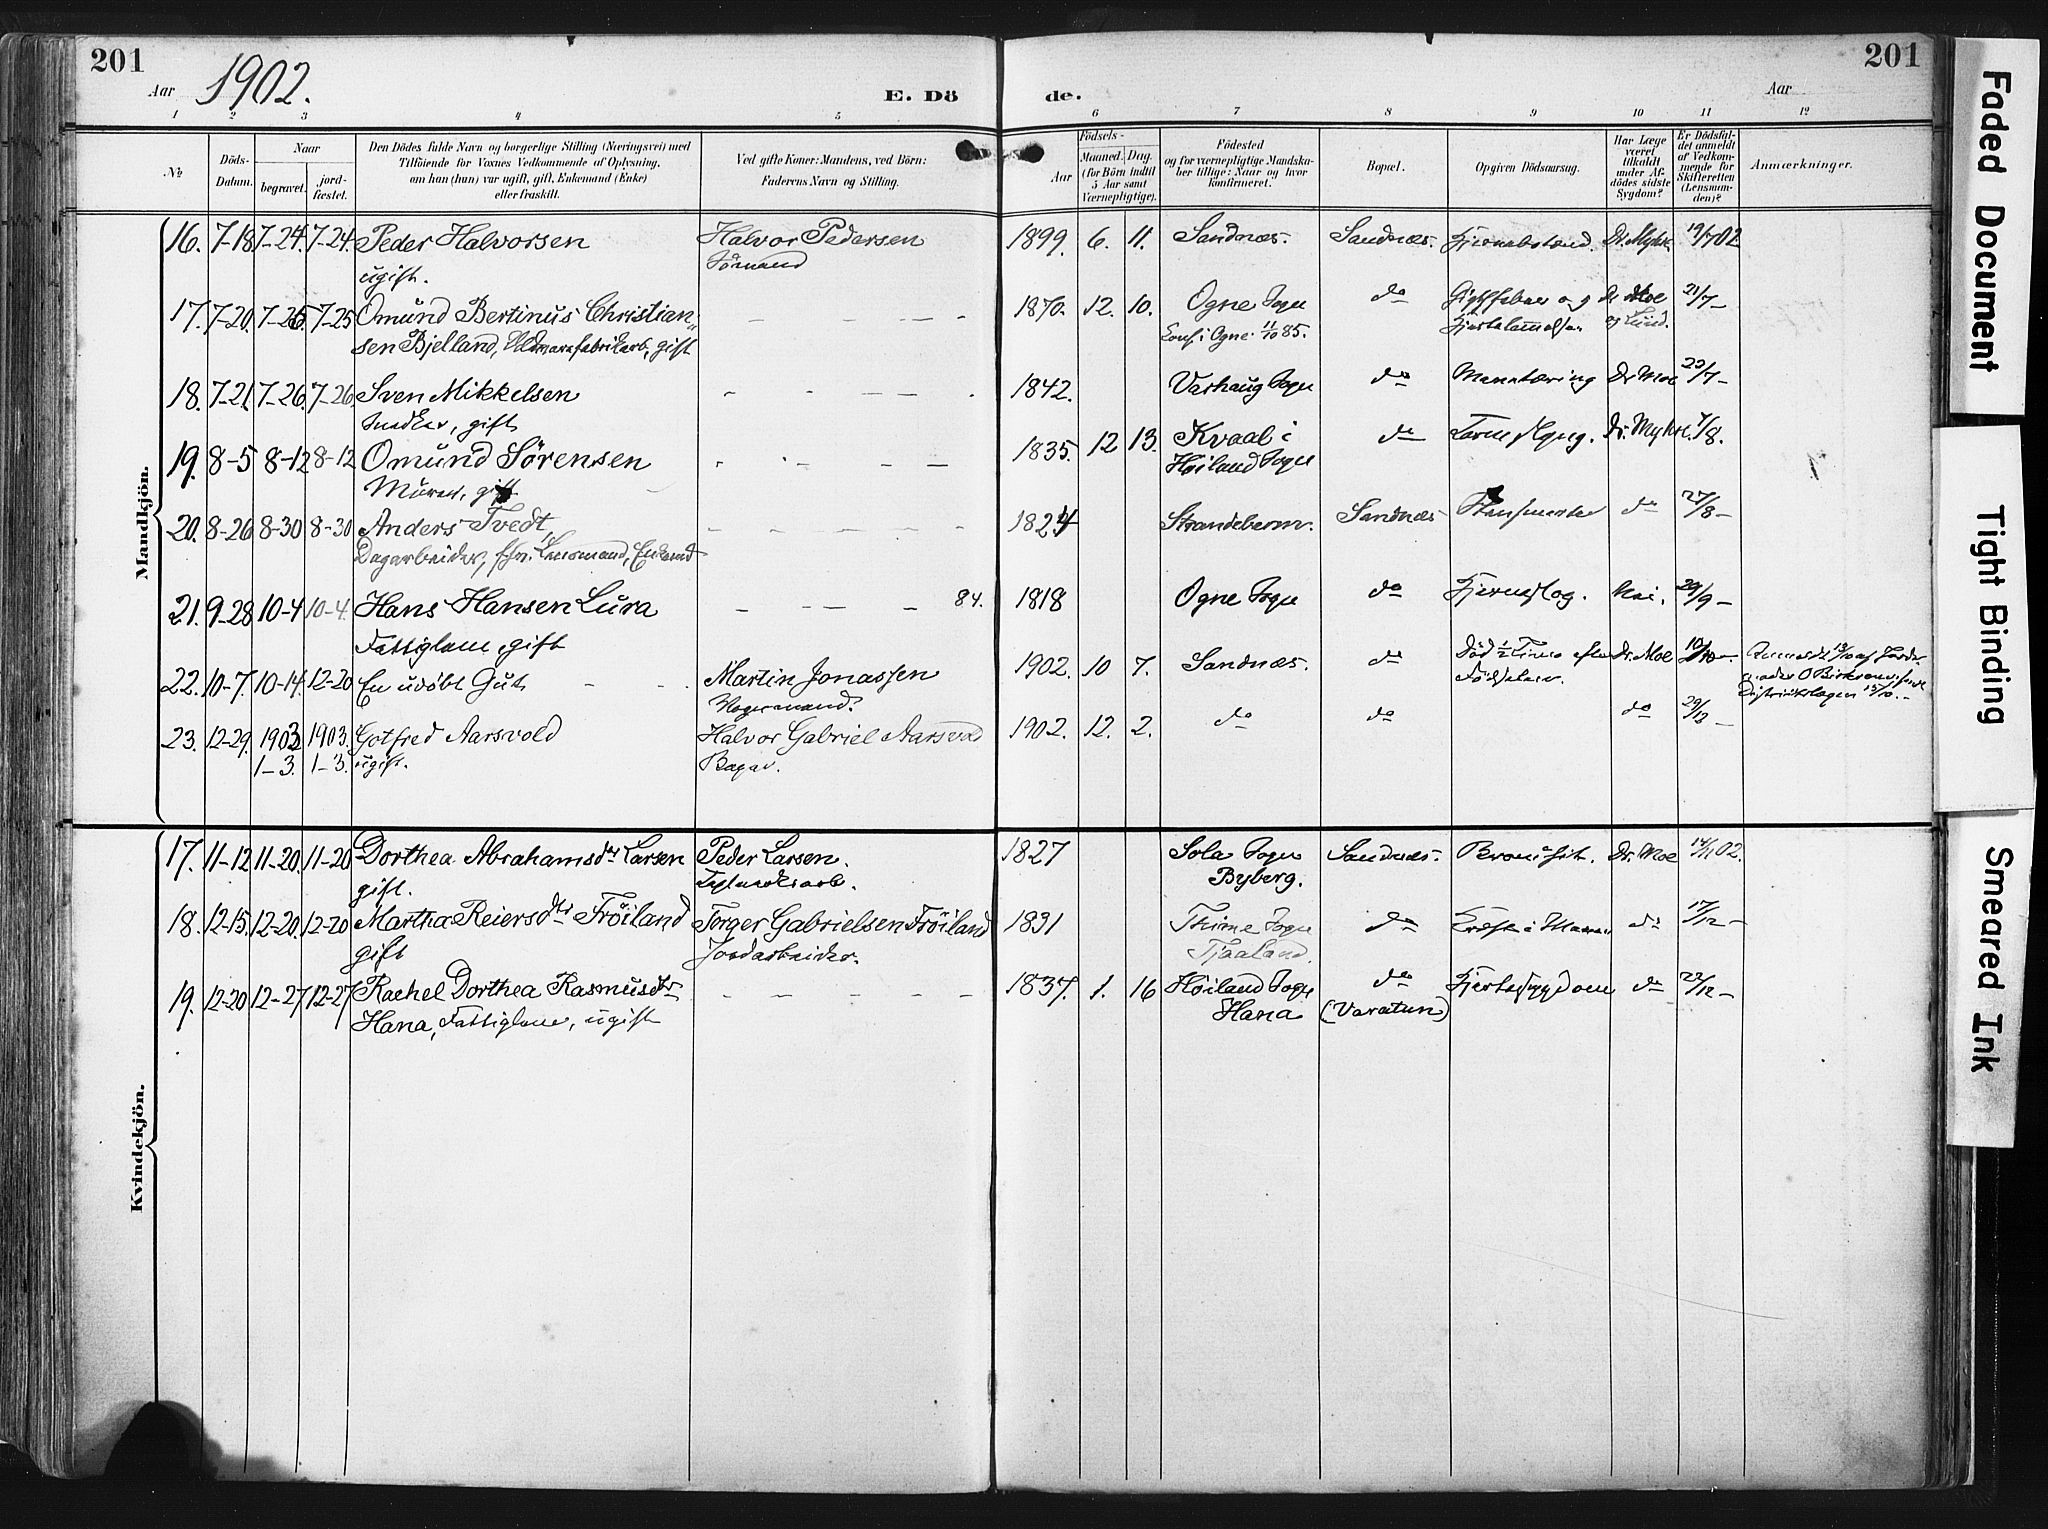 201
201
Aar 1902.
E. Dö de.
Aar
1 2 3 4 5 6 7 8 9 10 11 12
No
Döds-Datum.
Naar
begravet.
jord-fæstet.
Den Dödes fulde Navn og borgerlige Stilling (Næringsvei) med
Tilföiende for Voxnes Vedkommende af Oplysning,
om han (hun) var ugift, gift, Enkemand (Enke)
eller fraskilt.
Ved gifte Koner: Mandens, ved Börn:
Faderens Navn og Stilling.
Födsels-
Aar
Maaned. Dag.
(for Börn indtil
5 Aar samt
Værnepligtige).
Födested
og for værnepligtige Mandska-
ber tillige: Naar og hvor
konfirmeret.
Bopæl.
Opgiven Dödsaarsag.
Har Læge
været
tilkaldt
under Af-
dödes sidste
Sygdom?
Er Dödsfal-
det anmeldt
af Vedkom-
mende for
Skifteretten
(Lensman-
den)?
Anmærkninger.
Mandkjön.
16. 7-18 7-24. 7-24. Peder Halvorsen Halvor Pedersen 1899. 6. 11. Sandnæs. Sandnæs. Dr. Myhre. 19/7 02
ugift. Sömand
17. 7-20. 7-25 7-25 Omund Bertinus Christian- 1870. 12. 10. Ogne Sogn do Gigtfeber og Dr Moe 21/7-
sen Bjelland, Uldvarefabrikarb, gift Conf. i Ogne 11/10 85. Hjertelammelse og Lund.
18. 7-21. 7-26. 7-26. Sven Mikkelsen 1842. Varhaug Sogn do Dr. Moe 23/7-
Snedker, gift
19. 8-5 8-12 8-12 Omund Sörensen 1835. 12 13. Kvaal i do Dr. Myhre. 7/8.
Murer, gift Höiland Sogn
20. 8-26 8-30 8-30 Anders Tvedt, 1824 Strandeberm. Sandnæs do 27/8-
Dagarbeider, Lensmand, Enkemd
21. 9-28 10-4 10-4. Hans Hansen Lura 84. 1818 Ogne Sogn do Hjerneslag. Nei. 29/9-
Fattiglem, gift
22. 10-7. 10-14. 12-20 En udöbt Gut Martin Jonassen 1902. 10 7. Sandnæs. do Död 1/2 Time efter Dr. Moe 10/10-
Vognmand. Födselen.
23. 12-29. 1903 1903. Gotfred Aarsvold Halvor Gabriel Aarsvold 1902. 12. 2. do do do 29/12-
1-3. 1-3. ugift. Bager.
Kvindekjön.
17. 11-12 11-20. 11-20 Dorthea Abrahamsdtr Larsen Peder Larsen. 1827 Sola Sogn Sandnæs. Dr. Moe 14/11 02.
gift. Byberg.
18. 12-15. 12-20. 12-20 Martha Reiersdtr Fröiland Torger Gabrielsen Fröiland 1831 Thime Sogn do Kræft i Maven do 17/12-
gift Jordarbeider. Tjaaland.
19. 12-20 12-27 12-27 Rachel Dorthea Rasmusdtr 1837. 1. 16 Höiland Sogn do Hjertesygdom do 22/12-
Hana, Fattiglem, ugift Hana (Varatun)
Faded Document
Tight Binding
Smeared Ink